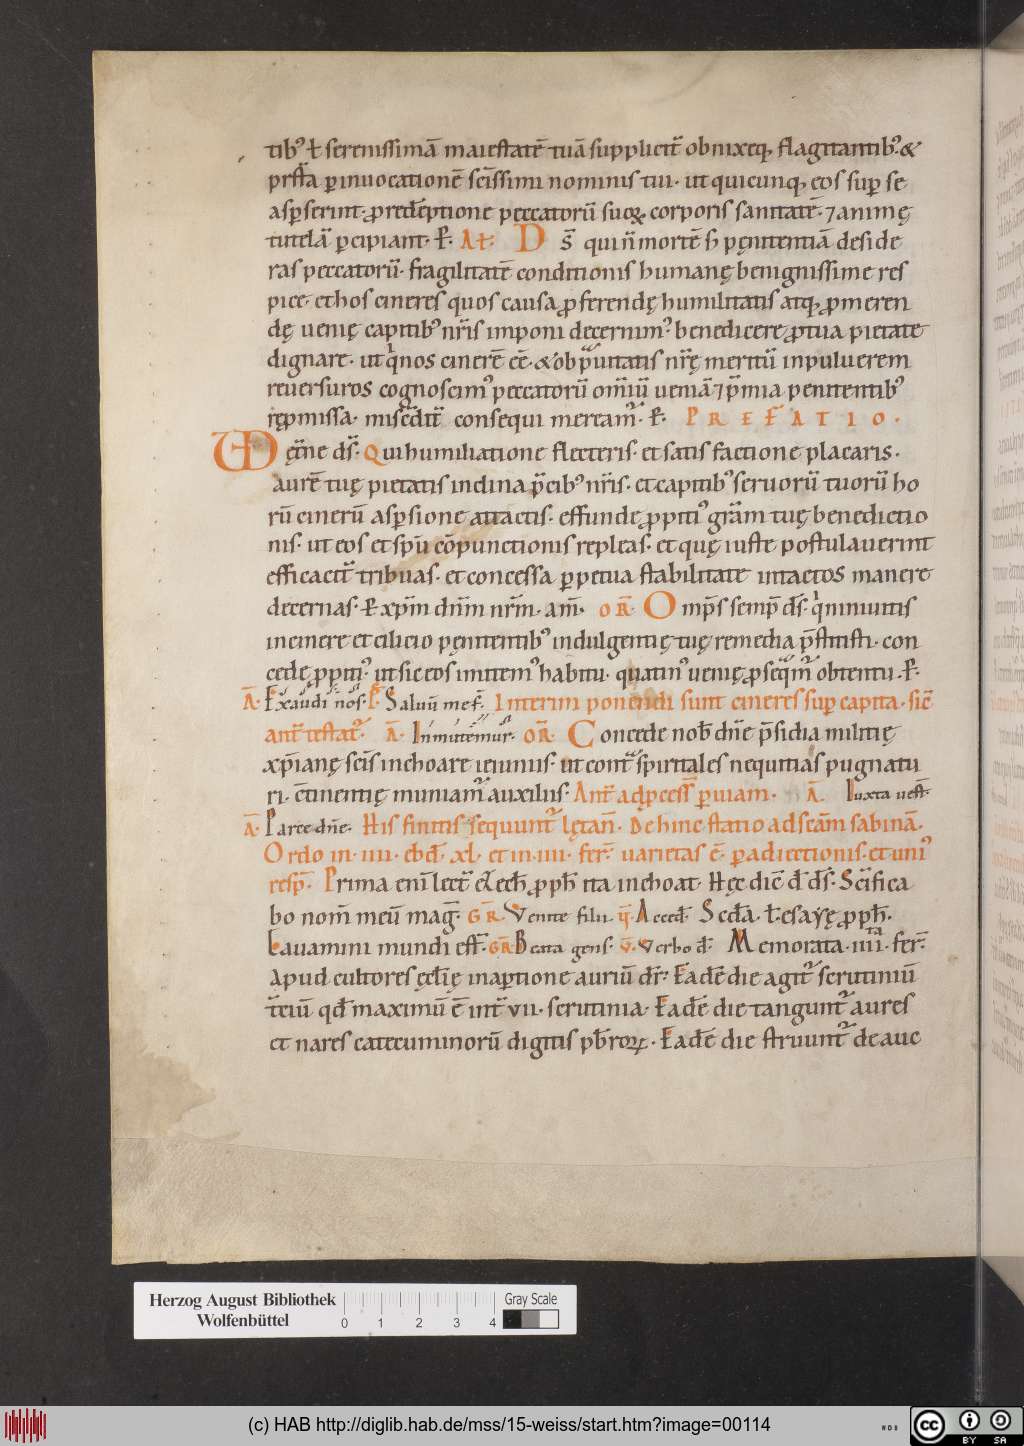 tibꝰ ł serenissimā maiestatē tuā supplicit̄ obnixeq; flagitantibꝰ. &
prȩ̄sta ꝑ inuocationē sc̄issimi nominis tui. ut quicunq; eos sup̱ se
asp̱serint. ꝓ redēptione peccatorū suoꝝ. corporis sanitatē. ⁊ animę
tutelā ꝑcipiant. ꝑ. At. Ds̄ qui n̄ mortē s; pęnitentiā deside
ras peccatorū. fragilitatē conditionis humanę benignissime res
pice. et hos cineres quos causa ꝓferendę humilitatis atq; ꝓmeren
dę uenię capitibꝰ nr̄is imponi decernimꝰ. benedicere ꝓ tua pietate
dignare. ut qͥ nos cinerē eē. & ob prͣuitatis nrȩ̄ meritū in puluerem
reuersuros cognoscimꝰ peccatorū om̄iū ueniā ⁊ p̄mia penitentibꝰ
rep̱missa. misc̄dit̄ consequi mereamr̄. ꝑ. PREFATIO.
VD ęt̄ne ds̄. Qui humiliatione flecteris. et satis factione placaris.
aurē tuę pietatis inclina p̄cibꝰ nr̄is. et capitibꝰ seruorū tuorū ho
rū cinerū asp̱sione attactis. effunde ꝓpitiꝰ grām tuę benedictio
nis. ut eos et spū cōpunctionis repleas. et quę iuste postulauerint
efficacit̄ tribuas. et concessa ꝑpetua stabilitate intactos manere
decernas. ꝑ xp̄m dnm̄ nrm̄. am̄. OR̄. Omps̄ semp̄ ds̄. qͥ niniuitis
in cinere et cilicio pęnitentibꝰ indulgentię tuę remedia p̄stitisti. con
cede ꝓpitiꝰ. ut sic eos imitemꝰ habitu. quatinꝰ uenię ꝓseqͣmr̄ obtentu. ꝑ.
Ā. Exaudi nos. P̄. Saluū me f̄. Interim ponendi sunt cineres sup̱ capita. sic̄
ant̄ testat̄. ā. Inmutemur. OR̄. Concede nob̄ dn̄e p̄sidia militię
xp̄ianę sc̄is inchoare ieiuniis. ut contͣ spiritales nequitias pugnatu
ri. c̄tinentię muniamr̄ auxiliis. Ant̄ ad p̱cess̄ ꝑ uiam. ā. Iuxta uest̄.
ā. Parce dn̄e. His finitis sequunt̄ lętan̄. Dehinc statio ad scām sabinā.
Ordo in .iiii. ebd̄. xl̄. et in .iiii. fer̄. uarietas ē. ꝑ adiectionis. et uniꝰ
resp̄. Prima eni lect̄ ezech̄ ꝓph̄ ita inchoat. Hęc dic̄ d̄ ds̄. Sc̄ifica
bo nom̄ meū mag̃. GR̄. Venite filii. V̄. Acced̄. Scd̄a. ł. esayę ꝓph̄.
Lauamini mundi est̄. GR̄ Beata gens. V̄. Verbo d̄. Memorata .iiii.ta fer̄
apud cultores ęcl̄ię in aꝑtione auriū dr̄. Eadē die agit̄ scrutiniū
t̄ciū qd̄ maximū ē int̄ vii. scrutinia. Eadē die tangunt̄ aures
et nares catecuminorū digitis pb̄roꝝ. Eadē die struunt̄ de auc
Herzog August Bibliothek
Wolfenbüttel
0 1 2 3 4
Gray Scale
(c) HAB http://diglib.hab.de/mss/15-weiss/start.htm?image=00114
cc BY SA